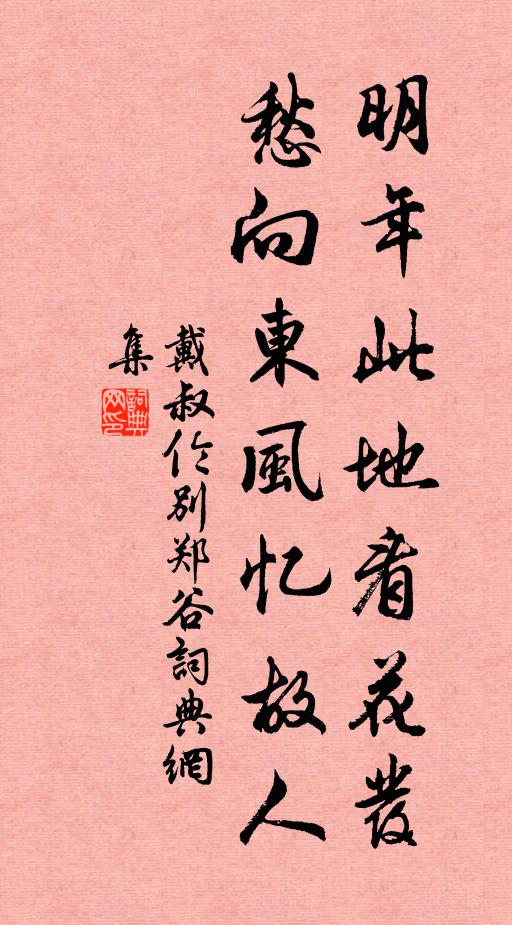 明年此地看花發
愁向東風忆故人
戴叔伦別郑谷詞典網
集
詞典网印